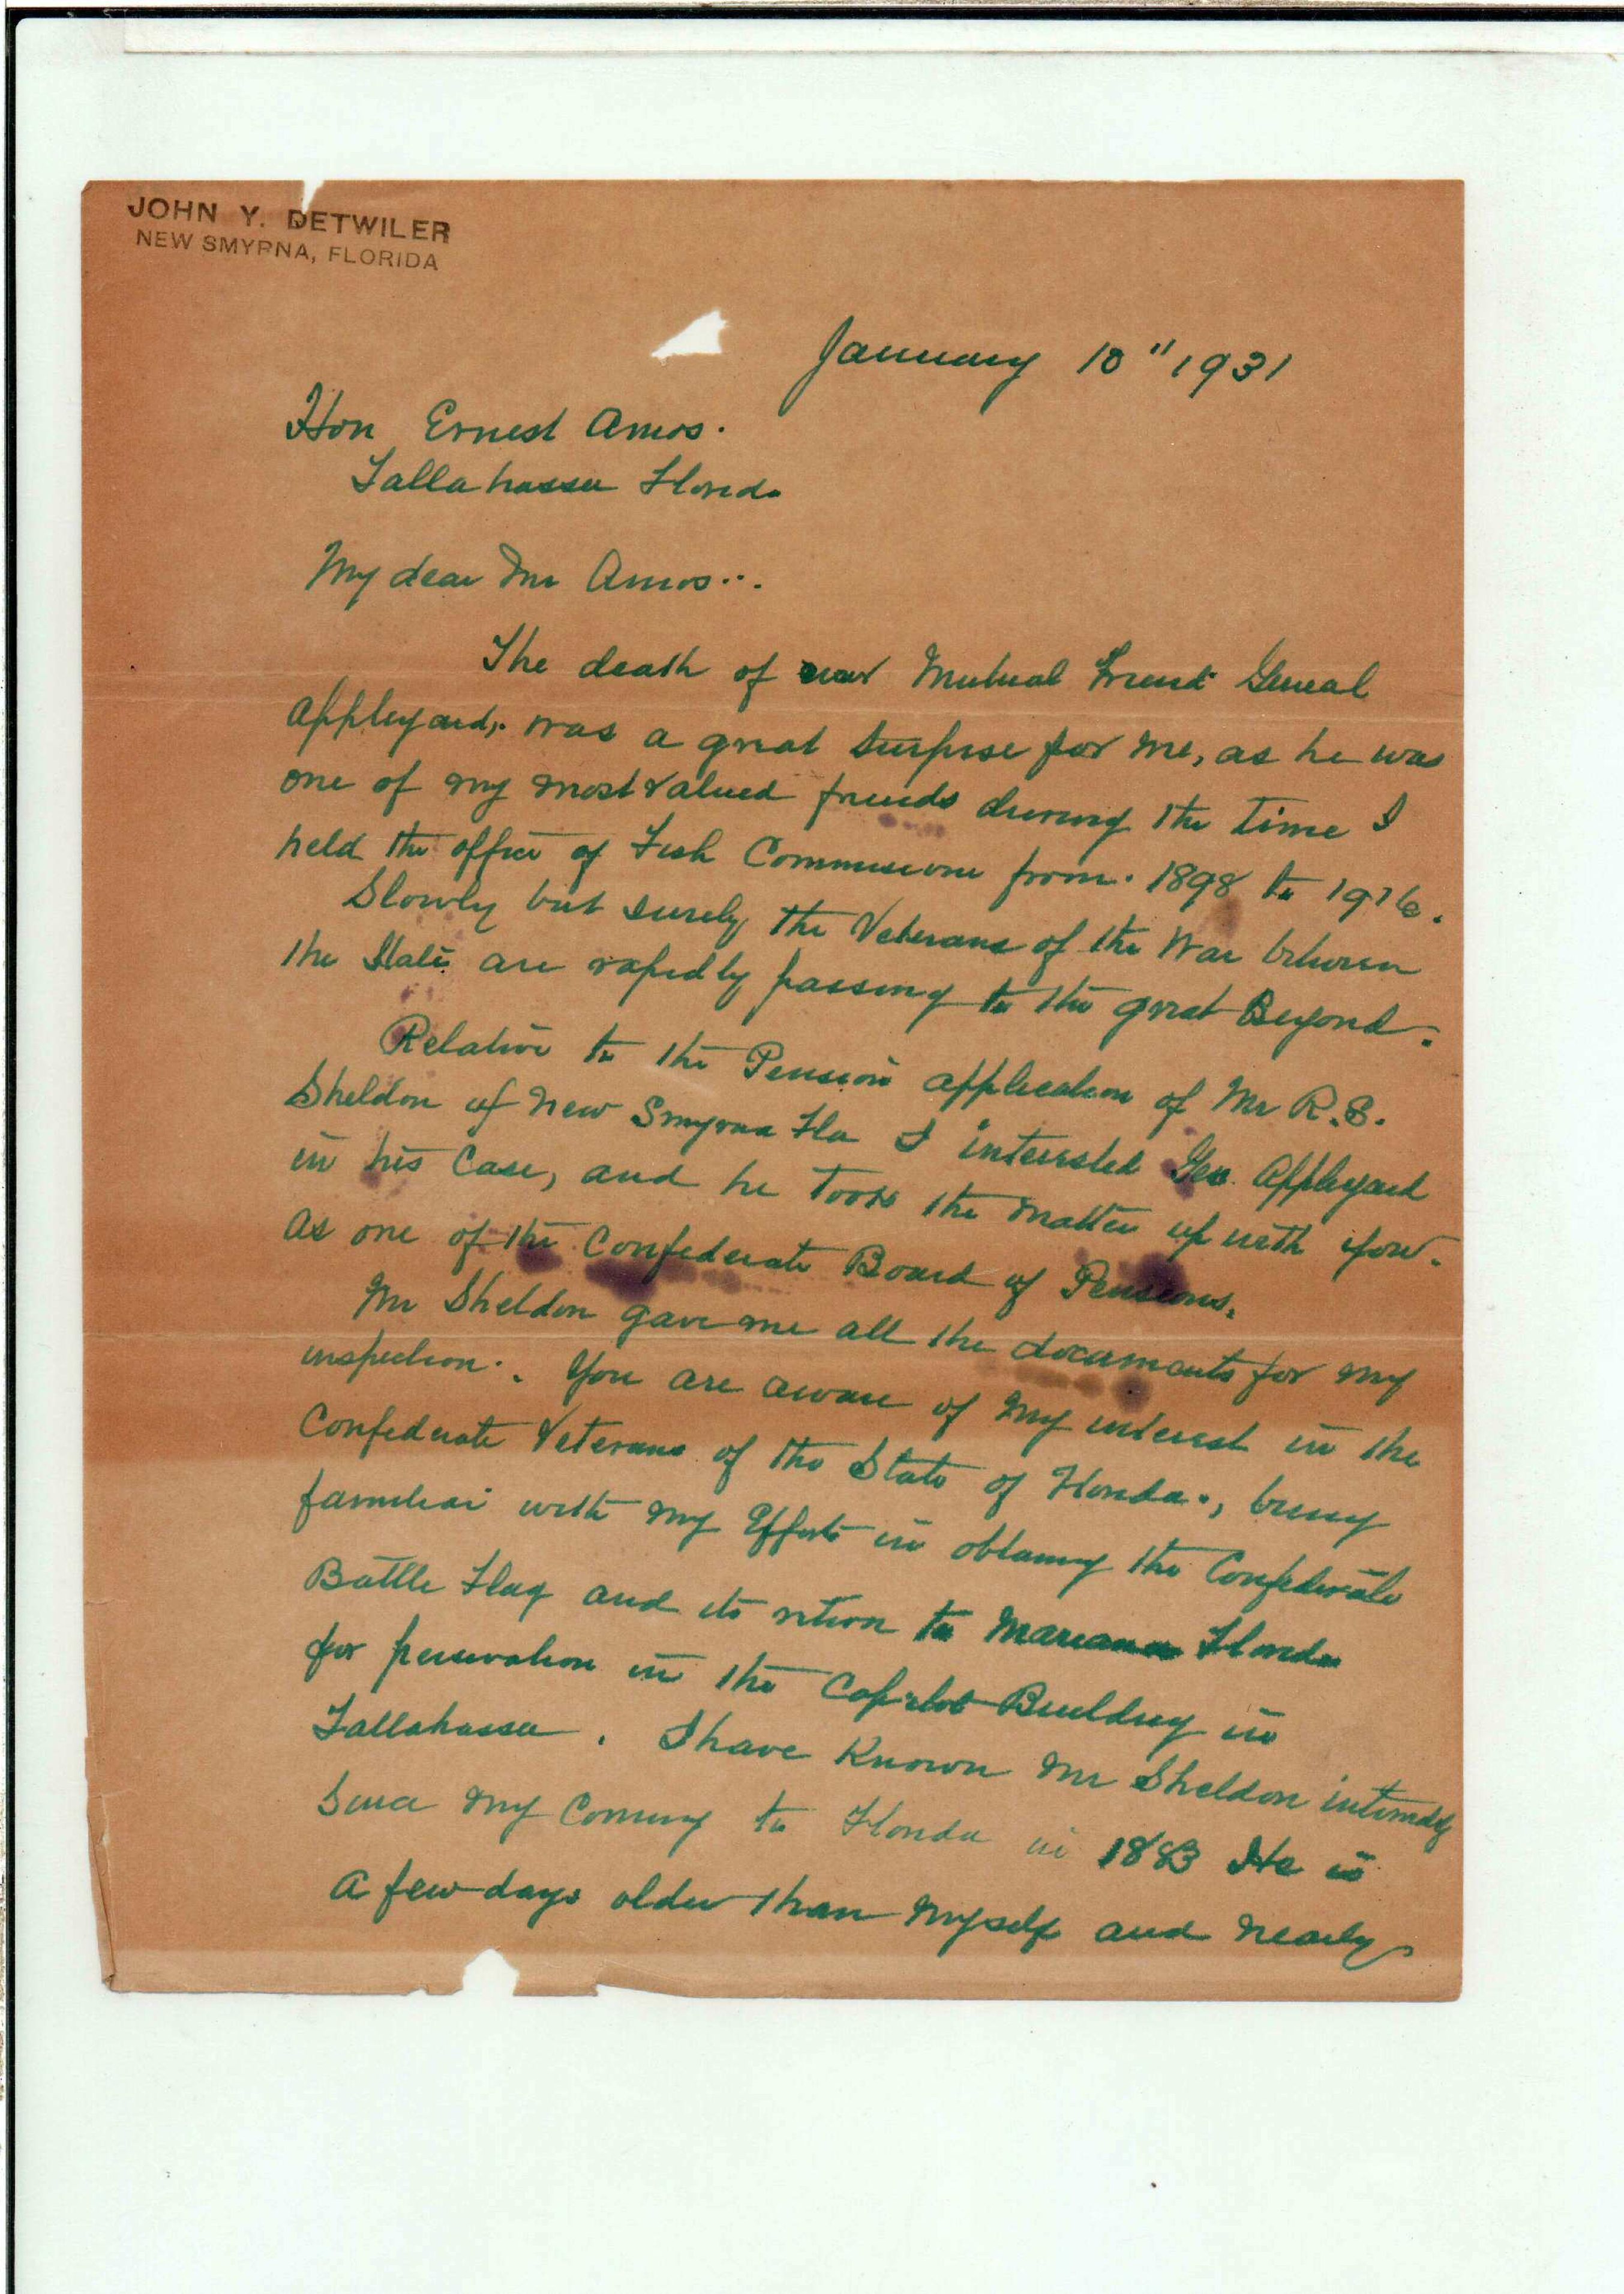 JOHN Y. DETWILER
NEW SMYRNA, FLORIDA
January 10" 1931
Hon Ernest Amos.
Tallahassee Florida
My dear Mr Amos...
The death of our Mutual Friend General
Appleyard, was a great surprise for me, as he was
one of my most valued friends during the time I
held the office of Fish Commissioner from. 1898 to 1916.
Slowly but surely the Veterans of the War between
the States are rapidly passing to the great Beyond.
Relative to the Pension application of Mr R.S.
Sheldon of New Smyrna Fla I interested Gen. Appleyard
in his Case, and he took the matter up with you.
As one of the Confederate Board of Pensions.
Mr Sheldon gave me all the documents for my
inspection. You are aware of my interest in the
Confederate Veterans of the State of Florida., being
familiar with my Efforts in obtaining the Confederate
Battle Flag and its return to Mariana Florida
for preservation in the Capitol Building in
Tallahassee. I have Known Mr Sheldon intimately
Since my Coming to Florida in 1883 He is
A few days older than Myself and nearly